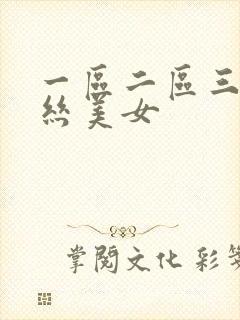 一區二區三
絲美女
掌閱文化 彩